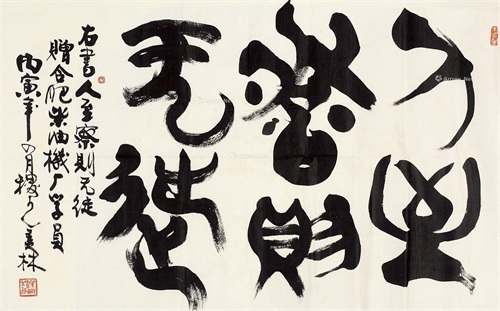 人至
察則
无徒
右書人至察則无徒
贈合肥柴油機厂学員
丙寅年四月美林